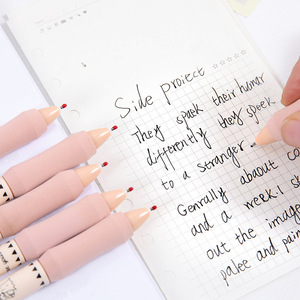 Side project
They speak their humor
differently they speek
to a stranger.
Genrally abaout co
and a week.1 s
out the image
palee and pain